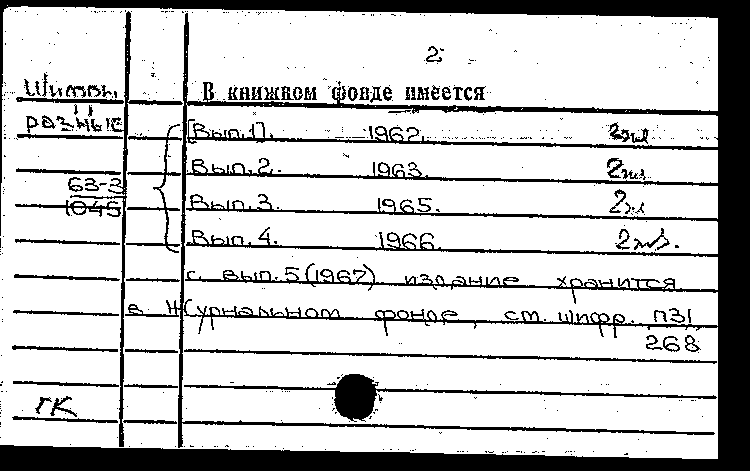 2
Шифры В книжном фонде имеется
разные [Вып.1]. 1962. 2экз
Вып.2. 1963. 2экз
63-3 Вып.3. 1965. 2экз
1045 Вып.4. 1966. 2экз.
с вып.5(1967) издание хранится
в журнальном фонде, ст. шифр. П31
268
ГК